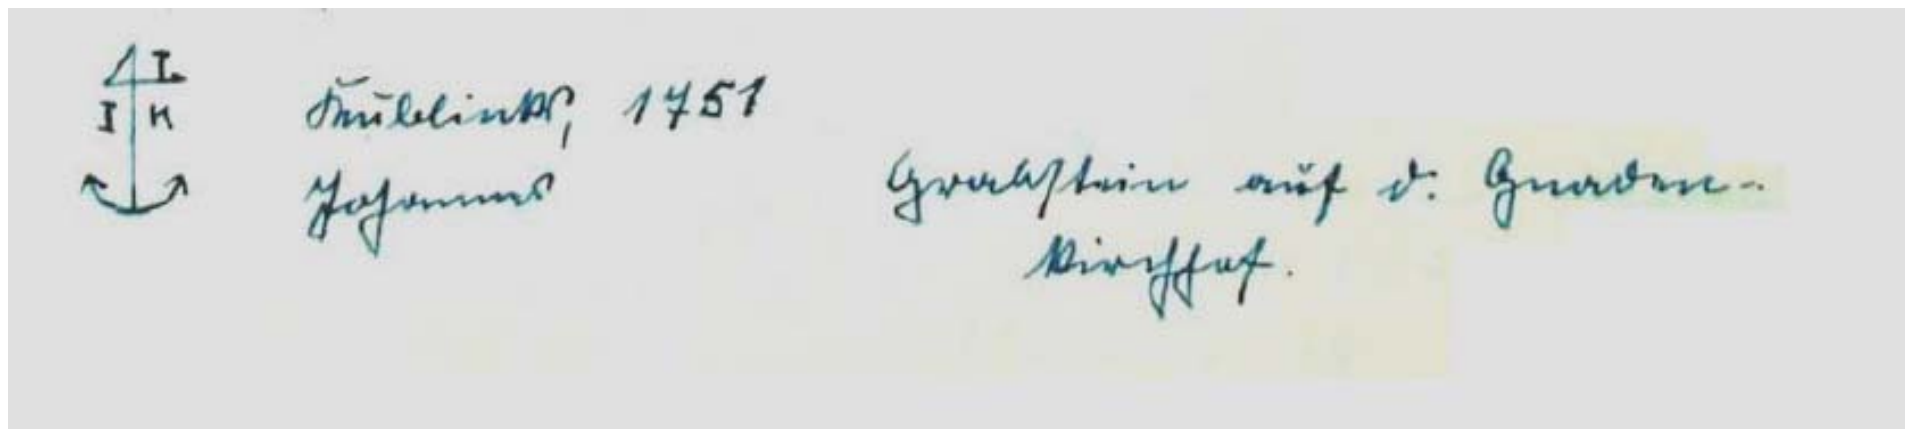 I.
I K
1751
Johannes
Grabstein auf d. Gnaden-
kirchhof.